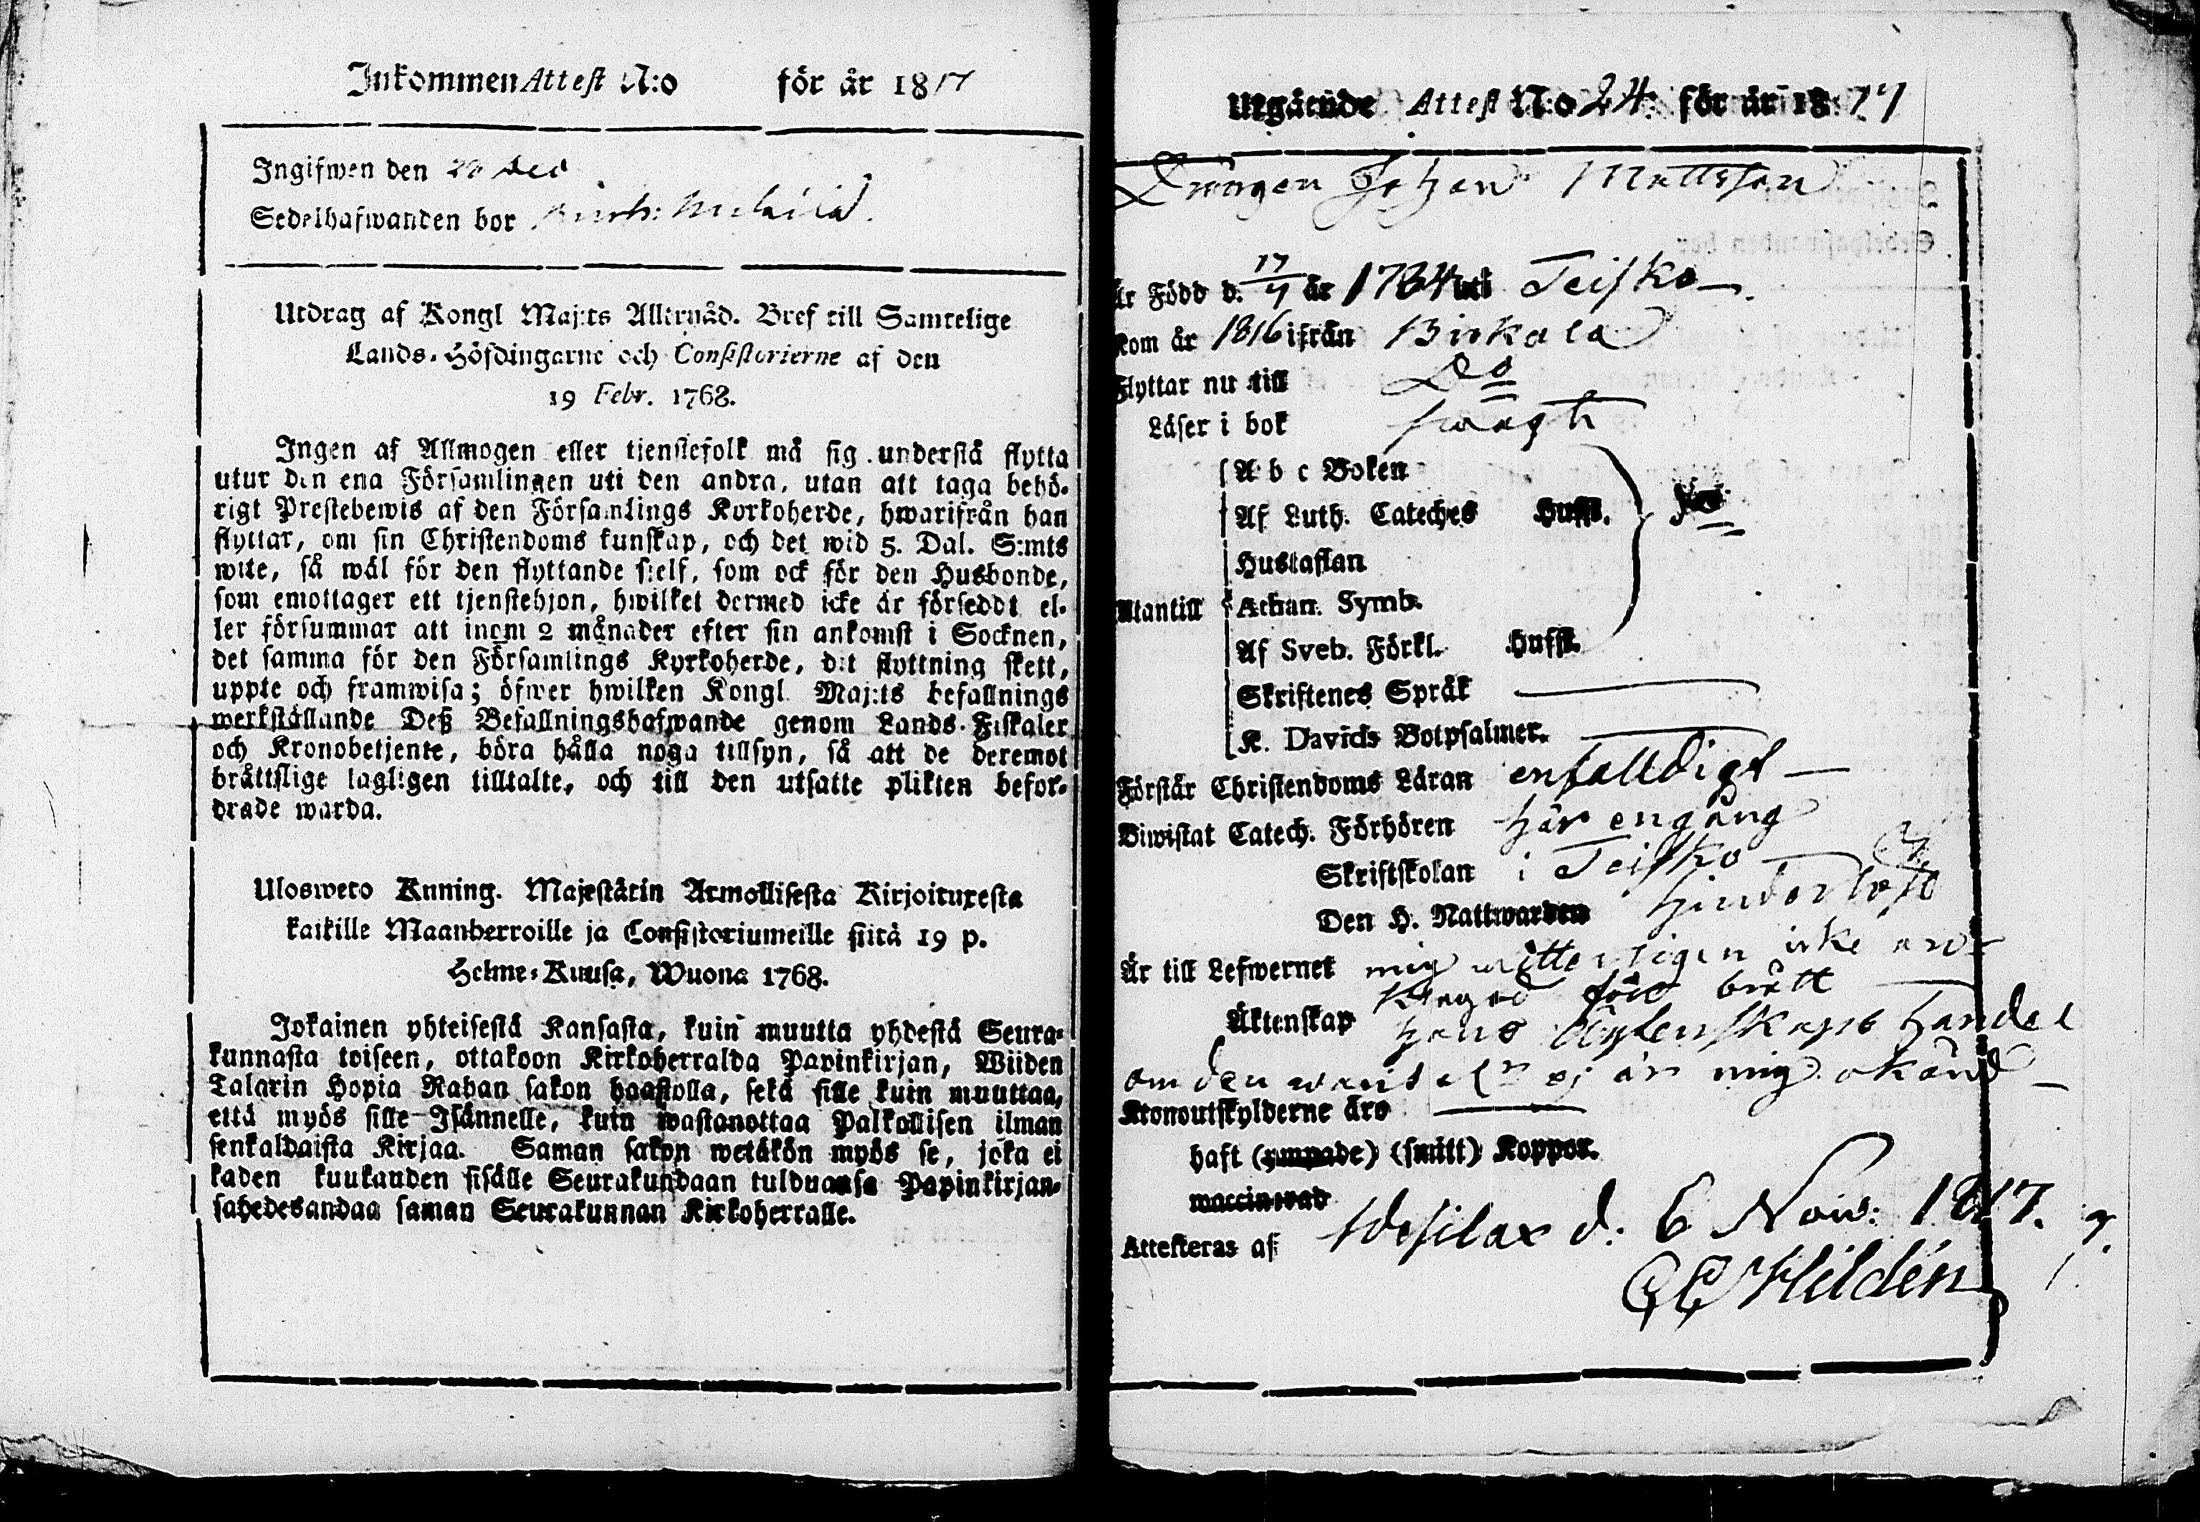 Inkommen Attest N:o för år 1817
Ingifwen den 20 Dec
Sedelhafwanden bor
Utdrag af Kongl Maj:ts Allernåd. Bref till Samtelige
Lands-Höfdingarne och Consistorierne af den
19 Febr. 1768.
Ingen af Allmogen eller tjenstefolk må sig understå flytta
utur den ena Församlingen uti den andra, utan att taga behö-
rigt Prestebewis af den Församlings Kyrkoherde, hwarifrån han
flyttar, om sin Christendoms kunskap, och det wid 5. Dal. S:mts
wite, så wäl för den flyttande sjelf, som ock för den Husbonde,
som emottager ett tjenstehjon, hwilket dermed icke är förseddt el-
ler försummar att inom 2 månader efter sin ankomst i Socknen,
det samma för den Församlings Kyrkoherde, dit flyttning skett,
uppte och framwisa; öfwer hwilken Kongl. Maj:ts befallnings
werkställande Deß Befallningshafwande genom Lands-Fiskaler
och Kronobetjente, böra hålla noga tillsyn, så att de deremot
bråttslige lagligen tilltalte, och till den utsatte plikten befor-
drade warda.
Ulosweto Kuning. Majestätin Armollisesta Kirjoituxesta
kaikille Maanherroille ja Consistoriumeille siitä 19 p.
Helme-Kuusa, Wuona 1768.
Jokainen yhteisestä Kansasta, kuin muutta yhdestä Seura-
kunnasta toiseen, ottakoon Kirkoherralda Papinkirjan, Wiiden
Talarin Hopia Rahan sakon haastolla, sekä sille kuin muuttaa,
että myös sille Isännelle, kuin wastanottaa Palkollisen ilman
senkaldaista Kirjaa. Saman sakon wetäkön myös se, joka ei
kaden kuukauden sisälle Seurakundaan tulduansa Papinkirjan-
sahedesandaa saman Seurakunnan Kirkoherralle.
Utgående Attest N:o 24. för år 1817
Drängen Johan Mattsson
Är Född d. 17/7 år 1784 uti Teisko
Kom år 1816 ifrån Birkala
Flyttar nu till Do
Läser i bok swagt
A b c Boken
Af Luth. Cateches Hufst.
Hustaflan
Utantill Athan. Symb.
Af Sveb. Förkl. Hufst.
Skriftenes Språk
K. Davids Botpsalmer.
Förstår Christendoms Läran enfalldigt
Biwistat Catech. Förhören här engång
Skriftskolan i Teisko
Den H. Nattwarden
Är till Lefwernet mig witterligen icke an-
klagad för brått
Äktenskap hans Ägtenskaps handel
om den warit eller ej är mig okänd
Kronoutskylderne äro
haft (ympade) (smitt) Koppor.
waccinerad
Attesteras af Wesilax d. 6 Nov: 1817.
Hildén